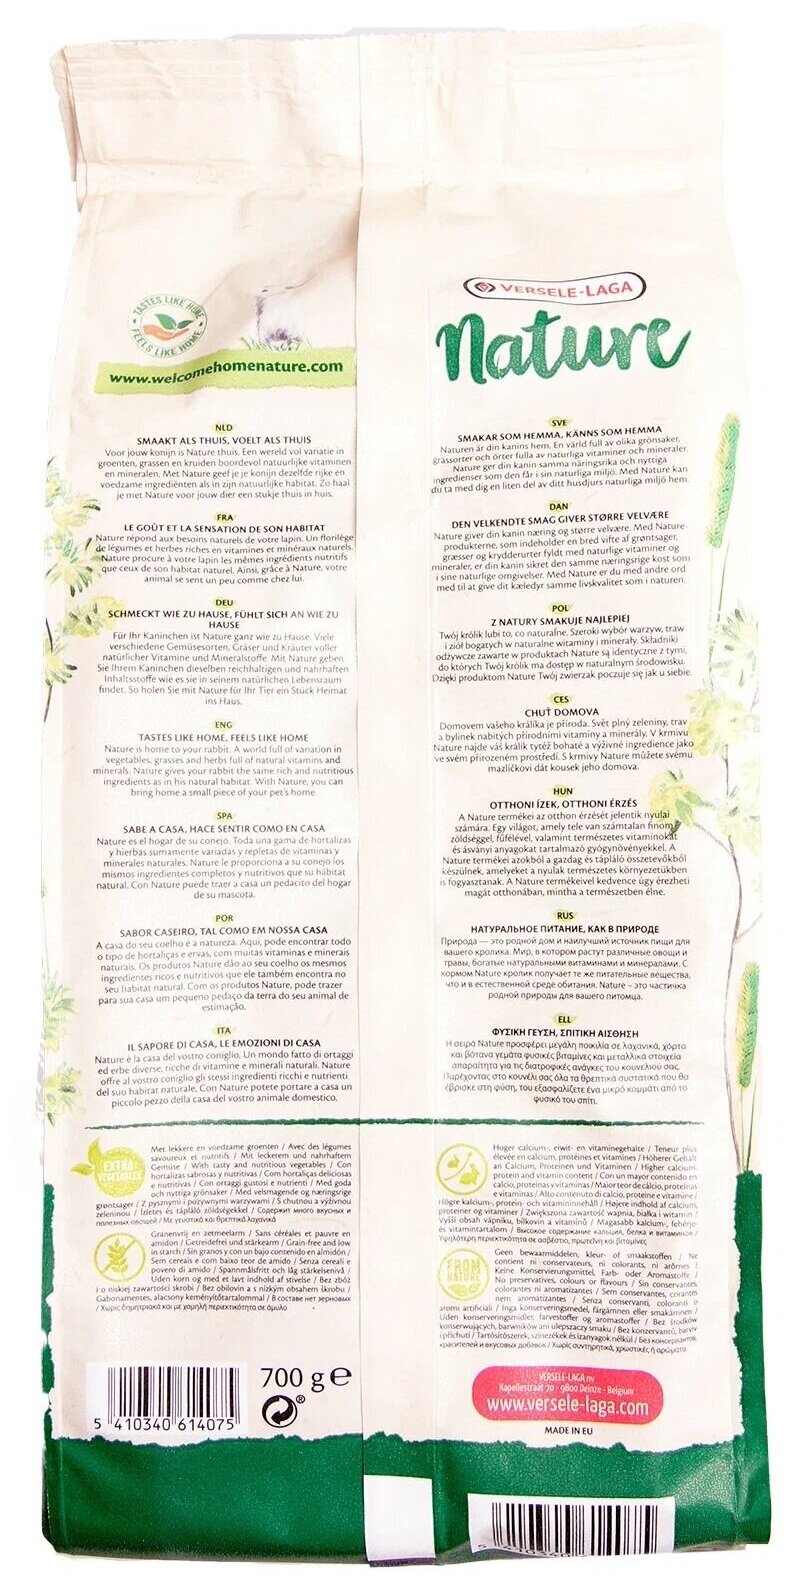 TASTES LIKE HOME
FEELS LIKE HOME
www.welcomehomenature.com
NLD
SMAAKT ALS THUIS, VOELT ALS THUIS
Voor jouw konijn is Nature thuis. Een wereld vol variatie in
groenten, grassen en kruiden boordevol natuurlijke vitaminen
en mineralen. Met Nature geef je je konijn dezelfde rijke en
voedzame ingrediënten als in zijn natuurlijke habitat. Zo haal
je met Nature voor jouw dier een stukje thuis in huis.
FRA
LE GOÛT ET LA SENSATION DE SON HABITAT
Nature répond aux besoins naturels de votre lapin. Un florilège
de légumes et herbes riches en vitamines et minéraux naturels.
Nature procure à votre lapin les mêmes ingrédients nutritifs
que ceux de son habitat naturel. Ainsi, grâce à Nature, votre
animal se sent un peu comme chez lui.
DEU
SCHMECKT WIE ZU HAUSE, FÜHLT SICH AN WIE ZU
HAUSE
Für Ihr Kaninchen ist Nature ganz wie zu Hause. Viele
verschiedene Gemüsesorten, Gräser und Kräuter voller
natürlicher Vitamine und Mineralstoffe. Mit Nature geben
Sie Ihrem Kaninchen dieselben reichhaltigen und nahrhaften
Inhaltsstoffe wie es sie in seinem natürlichen Lebensraum
findet. So holen Sie mit Nature für Ihr Tier ein Stück Heimat
ins Haus.
ENG
TASTES LIKE HOME, FEELS LIKE HOME
Nature is home to your rabbit. A world full of variation in
vegetables, grasses and herbs full of natural vitamins and
minerals. Nature gives your rabbit the same rich and nutritious
ingredients as in his natural habitat. With Nature, you can
bring home a small piece of your pet's home.
SPA
SABE A CASA, HACE SENTIR COMO EN CASA
Nature es el hogar de su conejo. Toda una gama de hortalizas
y hierbas sumamente variadas y repletas de vitaminas y
minerales naturales. Nature le proporciona a su conejo los
mismos ingredientes completos y nutritivos que su hábitat
natural. Con Nature puede traer a casa un pedacito del hogar
de su mascota.
POR
SABOR CASEIRO, TAL COMO EM NOSSA CASA
A casa do seu coelho é a natureza. Aqui, pode encontrar todo
o tipo de hortaliças e ervas, com muitas vitaminas e minerais
naturais. Os produtos Nature dão ao seu coelho os mesmos
ingredientes ricos e nutritivos que ele também encontra no
seu habitat natural. Com os produtos Nature, pode trazer
para sua casa um pequeno pedaço da terra do seu animal de
estimação.
ITA
IL SAPORE DI CASA, LE EMOZIONI DI CASA
Nature è la casa del vostro coniglio. Un mondo fatto di ortaggi
ed erbe diverse, ricche di vitamine e minerali naturali. Nature
offre al vostro coniglio gli stessi ingredienti ricchi e nutrienti
del suo habitat naturale. Con Nature potete portare a casa un
piccolo pezzo della casa del vostro animale domestico.
EXTRA
VEGETABLES
Met lekkere en voedzame groenten / Avec des légumes
savoureux et nutritifs / Mit leckerem und nahrhaftem
Gemüse / With tasty and nutritious vegetables / Con
hortalizas sabrosas y nutritivas / Com hortaliças deliciosas
e nutritivas / Con ortaggi gustosi e nutrienti / Med goda
och nyttiga grönsaker / Med velsmagende og næringsrige
grøntsager / Z pysznymi i pożywnymi warzywami / S chutnou a výživnou
zeleninou / Ízletes és tápláló zöldségekkel / Содержит много вкусных и
полезных овощей / Με γευστικά και θρεπτικά λαχανικά
Granenvrij en zetmeelarm / Sans céréales et pauvre en
amidon / Getreidefrei und stärkearm / Grain-free and low
in starch / Sin granos y con un bajo contenido en almidón /
Sem cereais e com baixo teor de amido / Senza cereali e
povero di amido / Spannmålsfritt och låg stärkelsenivå /
Uden korn og med et lavt indhold af stivelse / Bez zbóż
i o niskiej zawartości skrobi / Bez obilovin a s nízkým obsahem škrobu /
Gabonamentes, alacsony keményítőtartalommal / В составе нет зерновых
/ Χωρίς δημητριακά και με χαμηλή περιεκτικότητα σε άμυλο
5 410340 614075
700 g e
VERSELE-LAGA
Nature
SVE
SMAKAR SOM HEMMA, KÄNNS SOM HEMMA
Naturen är din kanins hem. En värld full av olika grönsaker,
grässorter och örter fulla av naturliga vitaminer och mineraler.
Nature ger din kanin samma näringsrika och nyttiga
ingredienser som den får i sin naturliga miljö. Med Nature kan
du ta med dig en liten del av ditt husdjurs naturliga miljö hem.
DAN
DEN VELKENDTE SMAG GIVER STØRRE VELVÆRE
Nature giver din kanin næring og større velvære. Med Nature-
produkterne, som indeholder en bred vifte af grøntsager,
græsser og krydderurter fyldt med naturlige vitaminer og
mineraler, er din kanin sikret den samme næringsrige kost som
i sine naturlige omgivelser. Med Nature er du med andre ord
med til at give dit kæledyr samme livskvalitet som i naturen.
POL
Z NATURY SMAKUJE NAJLEPIEJ
Twój królik lubi to, co naturalne. Szeroki wybór warzyw, traw
i ziół bogatych w naturalne witaminy i minerały. Składniki
odżywcze zawarte w produktach Nature są identyczne z tymi,
do których Twój królik ma dostęp w naturalnym środowisku.
Dzięki produktom Nature Twój zwierzak poczuje się jak u siebie.
CES
CHUŤ DOMOVA
Domovem vašeho králíka je příroda. Svět plný zeleniny, trav
a bylinek nabitých přírodními vitaminy a minerály. V krmivu
Nature najde váš králík tytéž bohaté a výživné ingredience jako
ve svém přirozeném prostředí. S krmivy Nature můžete svému
mazlíčkovi dát kousek jeho domova.
HUN
OTTHONI ÍZEK, OTTHONI ÉRZÉS
A Nature termékei az otthon érzését jelentik nyulai
számára. Egy világot, amely tele van számtalan finom
zöldséggel, fűfélével, valamint természetes vitaminokat
és ásványi anyagokat tartalmazó gyógynövényekkel. A
Nature termékei azokból a gazdag és tápláló összetevőkből
készülnek, amelyeket a nyulak természetes környezetükben
is fogyasztanak. A Nature termékeivel kedvence úgy érezheti
magát otthonában, mintha a természetben élne.
RUS
НАТУРАЛЬНОЕ ПИТАНИЕ, КАК В ПРИРОДЕ
Природа — это родной дом и наилучший источник пищи для
вашего кролика. Мир, в котором растут различные овощи и
травы, богатые натуральными витаминами и минералами. С
кормом Nature кролик получает те же питательные вещества,
что и в естественной среде обитания. Nature – это частичка
родной природы для вашего питомца.
ELL
ΦΥΣΙΚΗ ΓΕΥΣΗ, ΣΠΙΤΙΚΗ ΑΙΣΘΗΣΗ
Η σειρά Nature προσφέρει μεγάλη ποικιλία σε λαχανικά, χόρτα
και βότανα γεμάτα φυσικές βιταμίνες και μεταλλικά στοιχεία
απαραίτητα για τις διατροφικές ανάγκες του κουνελιού σας.
Παρέχοντας στο κουνέλι σας όλα τα θρεπτικά συστατικά που θα
έβρισκε στη φύση, του εξασφαλίζετε ένα μικρό κομμάτι από το
φυσικό του σπίτι.
Hoger calcium-, eiwit- en vitaminegehalte / Teneur plus
élevée en calcium, protéines et vitamines / Höherer Gehalt
an Calcium, Proteinen und Vitaminen / Higher calcium,
protein and vitamin content / Con un mayor contenido en
calcio, proteínas y vitaminas / Maior teor de cálcio, proteínas
e vitaminas / Alto contenuto di calcio, proteine e vitamine /
Högre kalcium-, protein- och vitamininnehåll / Højere indhold af calcium,
proteiner og vitaminer / Zwiększona zawartość wapnia, białka i witamin /
Vyšší obsah vápníku, bílkovin a vitamínů / Magasabb kalcium-, fehérje-
és vitamintartalom / Высокое содержание кальция, белка и витаминов /
Υψηλότερη περιεκτικότητα σε ασβέστιο, πρωτεΐνη και βιταμίνες
FROM
NATURE
Geen bewaarmiddelen, kleur- of smaakstoffen / Ne
contient ni conservateurs, ni colorants, ni arômes /
Keine Konservierungsmittel, Farb- oder Aromastoffe /
No preservatives, colours or flavours / Sin conservantes,
colorantes ni aromatizantes / Sem conservantes, corantes
nem aromatizantes / Senza conservanti, coloranti o
aromi artificiali / Inga konserveringsmedel, färgämnen eller smakämnen /
Uden konserveringsmidler, farvestoffer og aromastoffer / Bez środków
konserwujących, barwników ani ulepszaczy smaku / Bez konzervantů, barviv
i příchutí / Tartósítószerek, színezékek és ízanyagok nélkül / Без консервантов,
красителей и вкусовых добавок / Χωρίς συντηρητικά, χρωστικές ή αρώματα
VERSELE-LAGA nv
Kapellestraat 70 - 9800 Deinze - Belgium
www.versele-laga.com
MADE IN EU